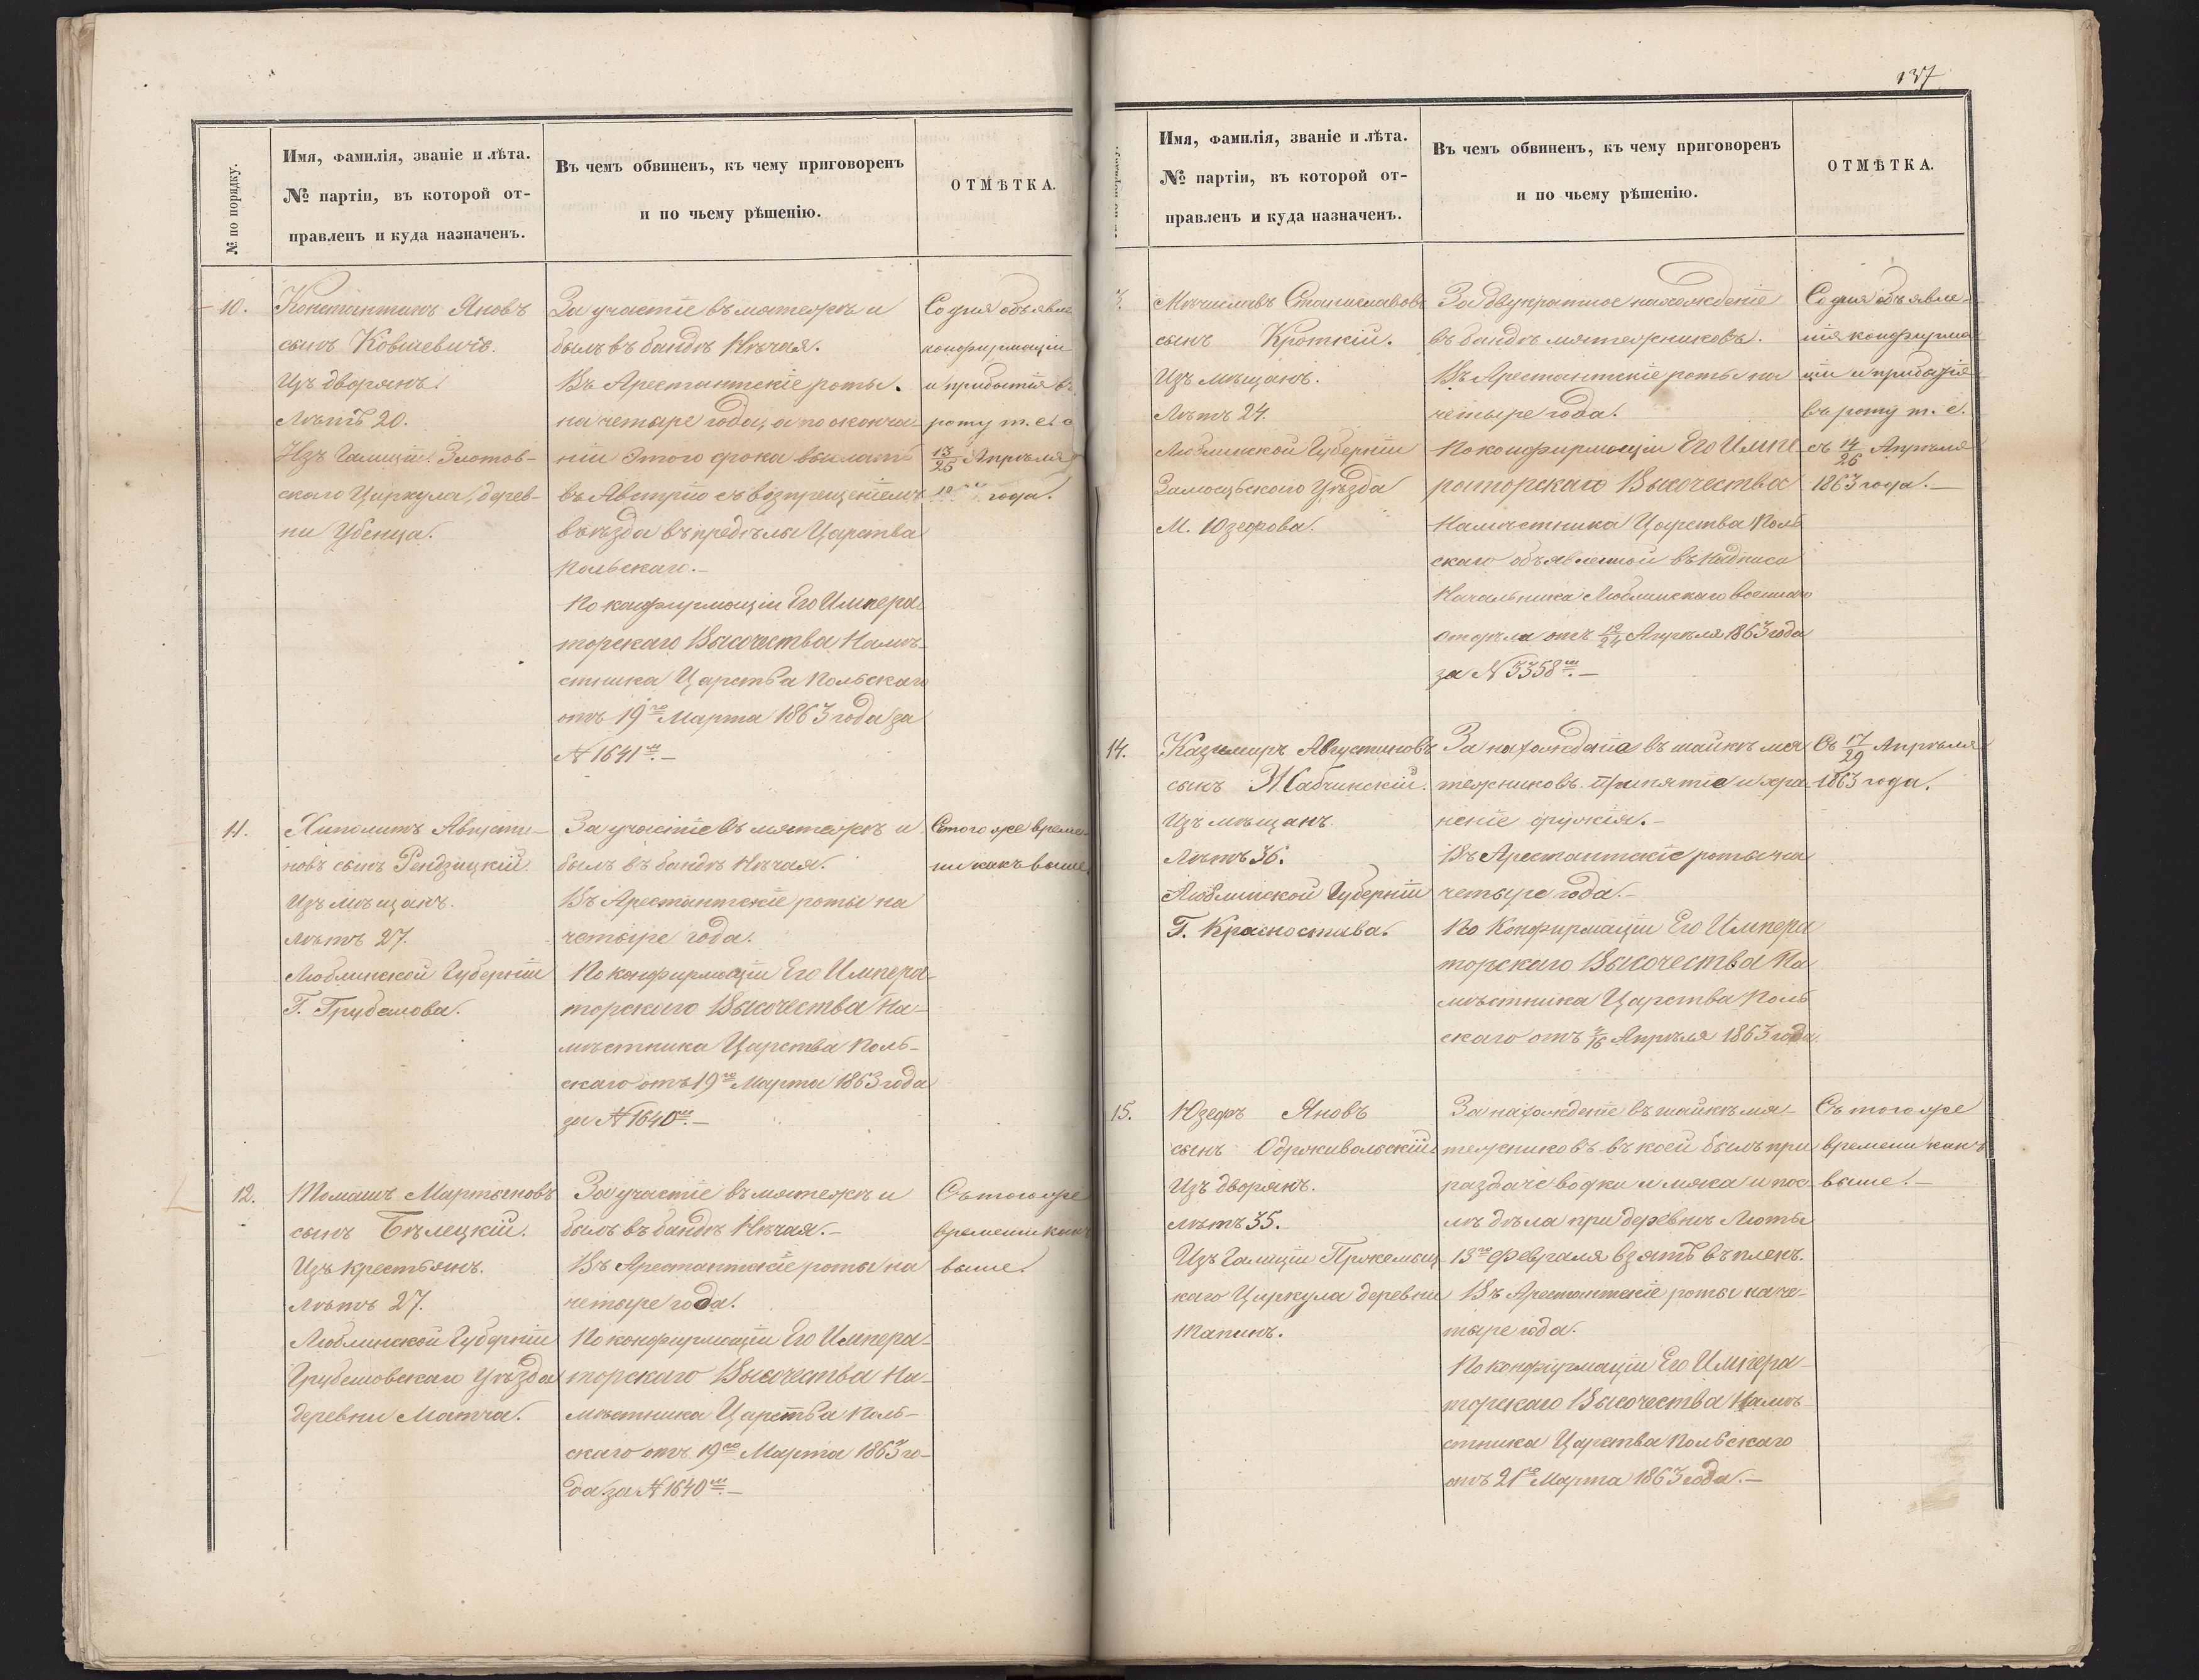 № по порядку.
Имя, фамилія, званіе и лѣта.
№ партіи, въ которой от-
правленъ и куда назначенъ.
Въ чемъ обвиненъ, къ чему приговоренъ
и по чьему рѣшенію.
ОТМѢТКА.
10.
Константинъ Яновъ
сынъ Ковшевичъ.
Изъ дворянъ.
Лѣтъ 20.
Изъ Галиціи. Злотов-
скаго Циркула, дерев-
ни Убенца.
За участіе въ мятежѣ и
былъ въ бандѣ Нѣчая.
Въ Арестантскіе роты.
на четыре года, а по оконча-
ніи этого срока выслать
въ Австрію съ возпрещеніемъ
въѣзда въ предѣлы Царства
Польскаго.—
По конфирмаціи Его Импера-
торскаго Высочества Намѣ-
стника Царства Польскаго
отъ 19го Марта 1863 года за
№ 1641м.—
Со дня объявле
конфирмаціи
и прибытія въ
роту т. е. с
13/25 Апрѣля
года.
11.
Хиполитъ Августи-
новъ сынъ Рендзицкій.
Изъ мѣщанъ.
Лѣтъ 27.
Люблинской Губерніи
Г. Грубешова.
За участіе въ мятежѣ и
былъ въ бандѣ Нѣчая.
Въ Арестантскіе роты на
четыре года.
По конфирмаціи Его Импера-
торскаго Высочества На-
мѣстника Царства Поль-
скаго отъ 19го Марта 1863 года
за № 1640м.—
Стого же време-
ни какъ выше.
12.
Томашъ Мартыновъ
сынъ Бѣлецкій.
Изъ крестьянъ.
Лѣтъ 27.
Люблинской Губерніи
Грубешовскаго Уѣзда
деревни Матча.
За участіе въ мятежѣ и
былъ въ бандѣ Нѣчая.—
Въ Арестантскіе роты на
четыре года.
По конфирмаціи Его Импера-
торскаго Высочества На-
мѣстника Царства Поль-
скаго отъ 19го Марта 1863 го-
да за № 1640м.—
Съ того же
времени какъ
выше.
137
Имя, фамилія, званіе и лѣта.
№ партіи, въ которой от-
правленъ и куда назначенъ.
Въ чемъ обвиненъ, къ чему приговоренъ
и по чьему рѣшенію.
ОТМѢТКА.
3.
Мѣчиславъ Станиславовъ
сынъ Кроткій.
Изъ мѣщанъ.
Лѣтъ 24.
Люблинской Губерніи
Замосцьскаго Уѣзда
М. Юзефова.
За двукратное нахожденіе
въ бандѣ мятежниковъ.
Въ Арестантскіе роты на
четыре года.
По конфирмаціи Его Импе-
раторскаго Высочества
Намѣстника Царства Поль
скаго объявленной въ надписи
Начальника Люблинскаго военнаго
отдѣла отъ 12/24 Апрѣля 1863 года
за № 3358м.—
Со дня объявле-
нія конфирма
ціи и прибытія
въ роту т. е.
съ 14/26 Апрѣля
1863 года.—
14.
Казимиръ Августиновъ
сынъ Жабчинскій.
Изъ мѣщанъ.
Лѣтъ 36.
Люблинской Губерніи
Г. Красностава.
За нахожденіе въ шайкѣ мя
тежниковъ принятіе и хра-
неніе оружія.—
Въ Арестантскіе роты на
четыре года.—
По Конфирмаціи Его Импера
торскаго Высочества На
мѣстника Царства Поль
скаго отъ 4/16 Апрѣля 1863 года
Съ 17/29 Апрѣля
1863 года.
15.
Юзефъ Яновъ
сынъ Одрживольскій.
Изъ дворянъ.
Лѣтъ 35.
Изъ Галиціи Пржемысц
каго Циркула деревни
Тапинъ.
За нахожденіе въ шайкѣ мя-
тежниковъ въ коей былъ при
раздачѣ водки и мяса и пос-
лѣ дѣла при деревнѣ Люты
13го Февраля взятъ въ плѣнъ.
Въ Арестантскіе роты на че-
тыре года.
По конфирмаціи Его Импера-
торскаго Высочества Намѣ-
стника Царства Польскаго
отъ 21го Марта 1863 года.—
Съ того же
времени какъ
выше.—